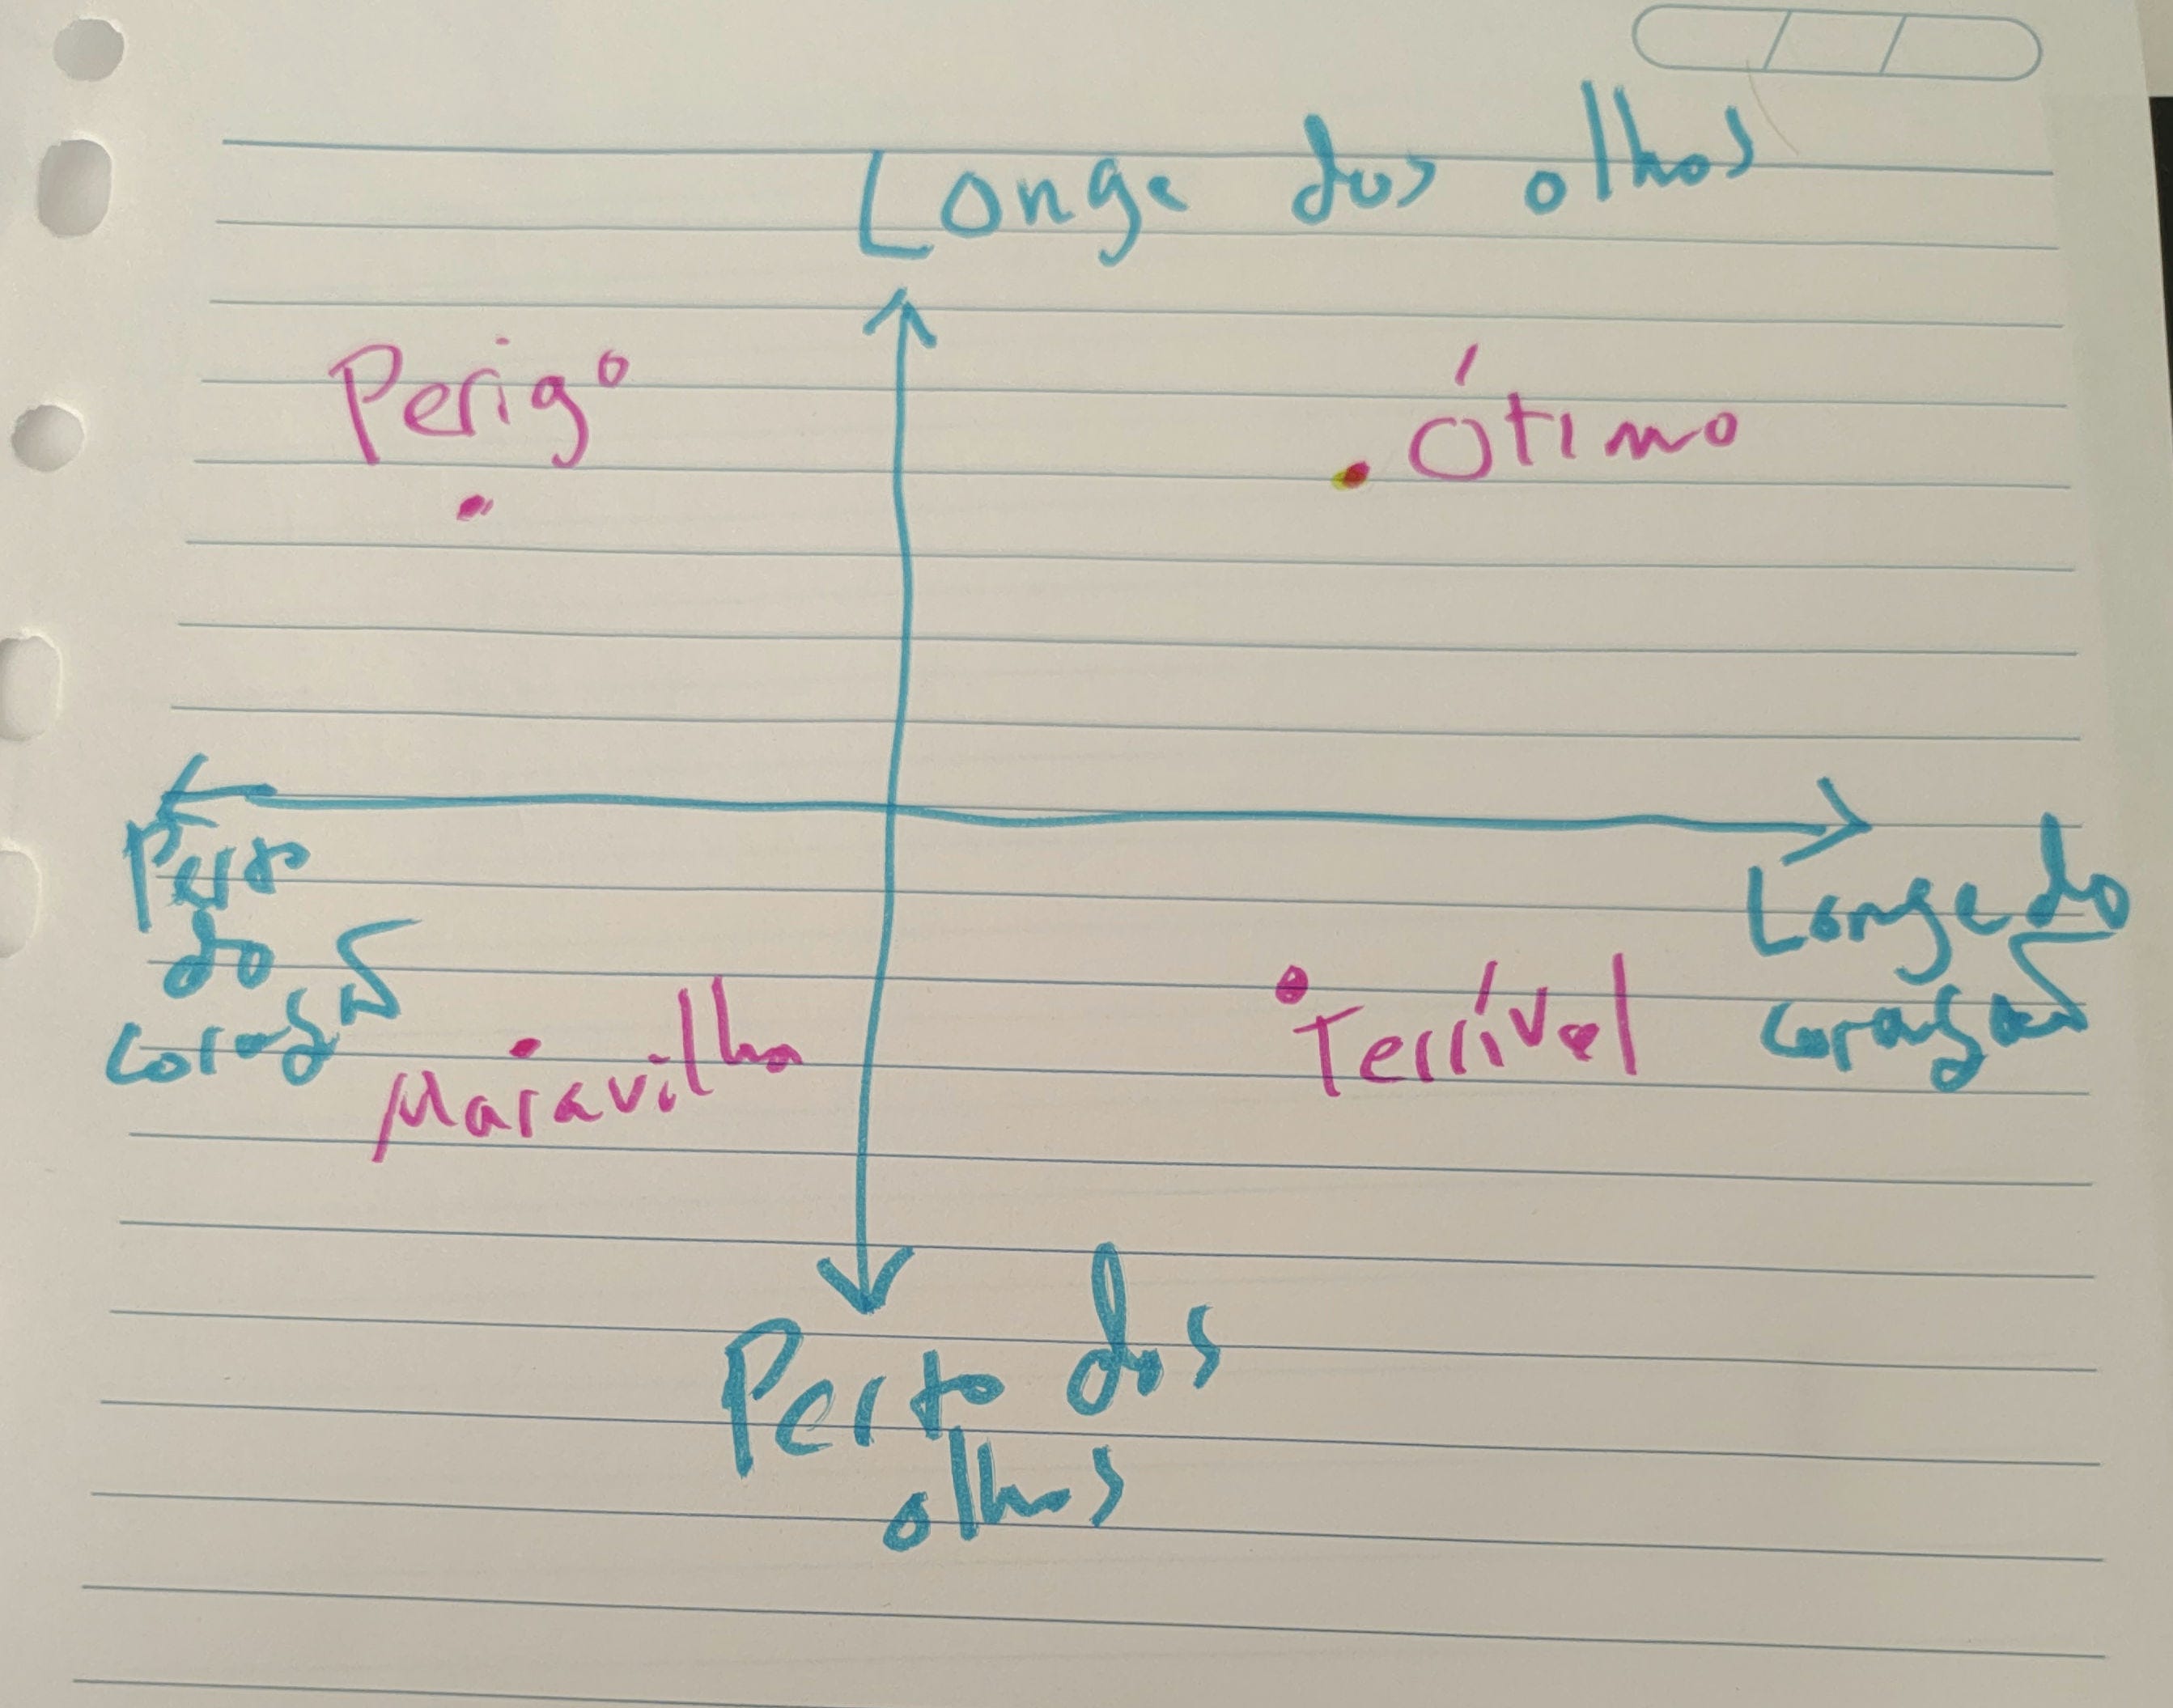 Longe dos olhos
Perigo
Ótimo
Perto
do
coração
Longe do
coração
Maravilha
Terrível
Perto dos
olhos